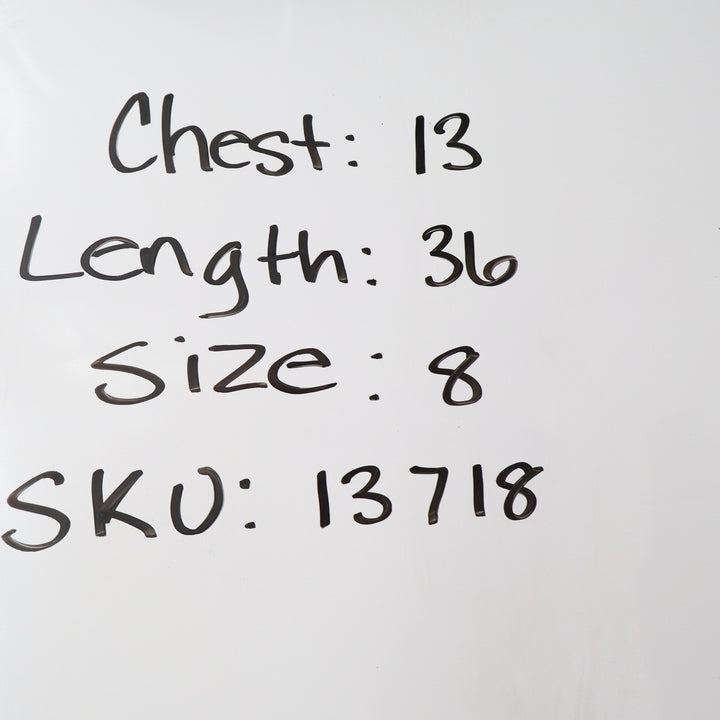 Chest: 13
Length: 36
Size: 8
SKU: 13718